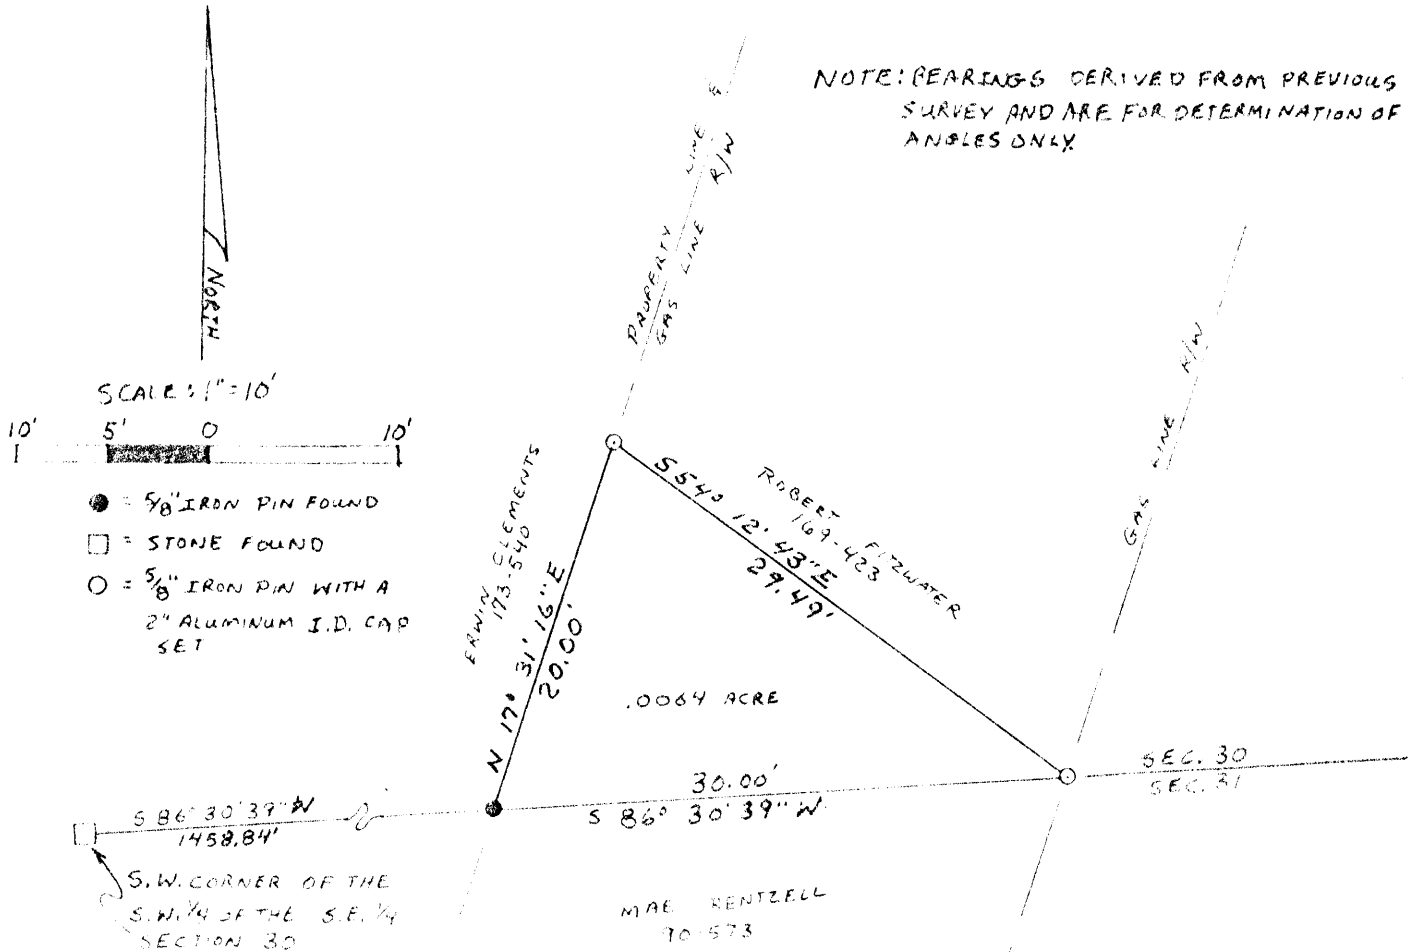 NOTE: BEARINGS DERIVED FROM PREVIOUS
SURVEY AND ARE FOR DETERMINATION OF
ANGLES ONLY.
NORTH
SCALE: 1" = 10'
10' 5' 0 10'
= 5/8" IRON PIN FOUND
= STONE FOUND
= 5/8" IRON PIN WITH A
2" ALUMINUM I.D. CAP
SET
PROPERTY LINE &
GAS LINE R/W
GAS LINE R/W
ERWIN CLEMENTS
173-540
N 17° 31' 16" E
20.00'
ROBERT FITZWATER
169-423
S 54° 12' 43" E
29.49'
.0064 ACRE
30.00'
S 86° 30' 39" W
SEC. 30
SEC. 31
S 86° 30' 39" W
1458.84'
S.W. CORNER OF THE
S.W. 1/4 OF THE S.E. 1/4
SECTION 30
MAE RENTZELL
90-573